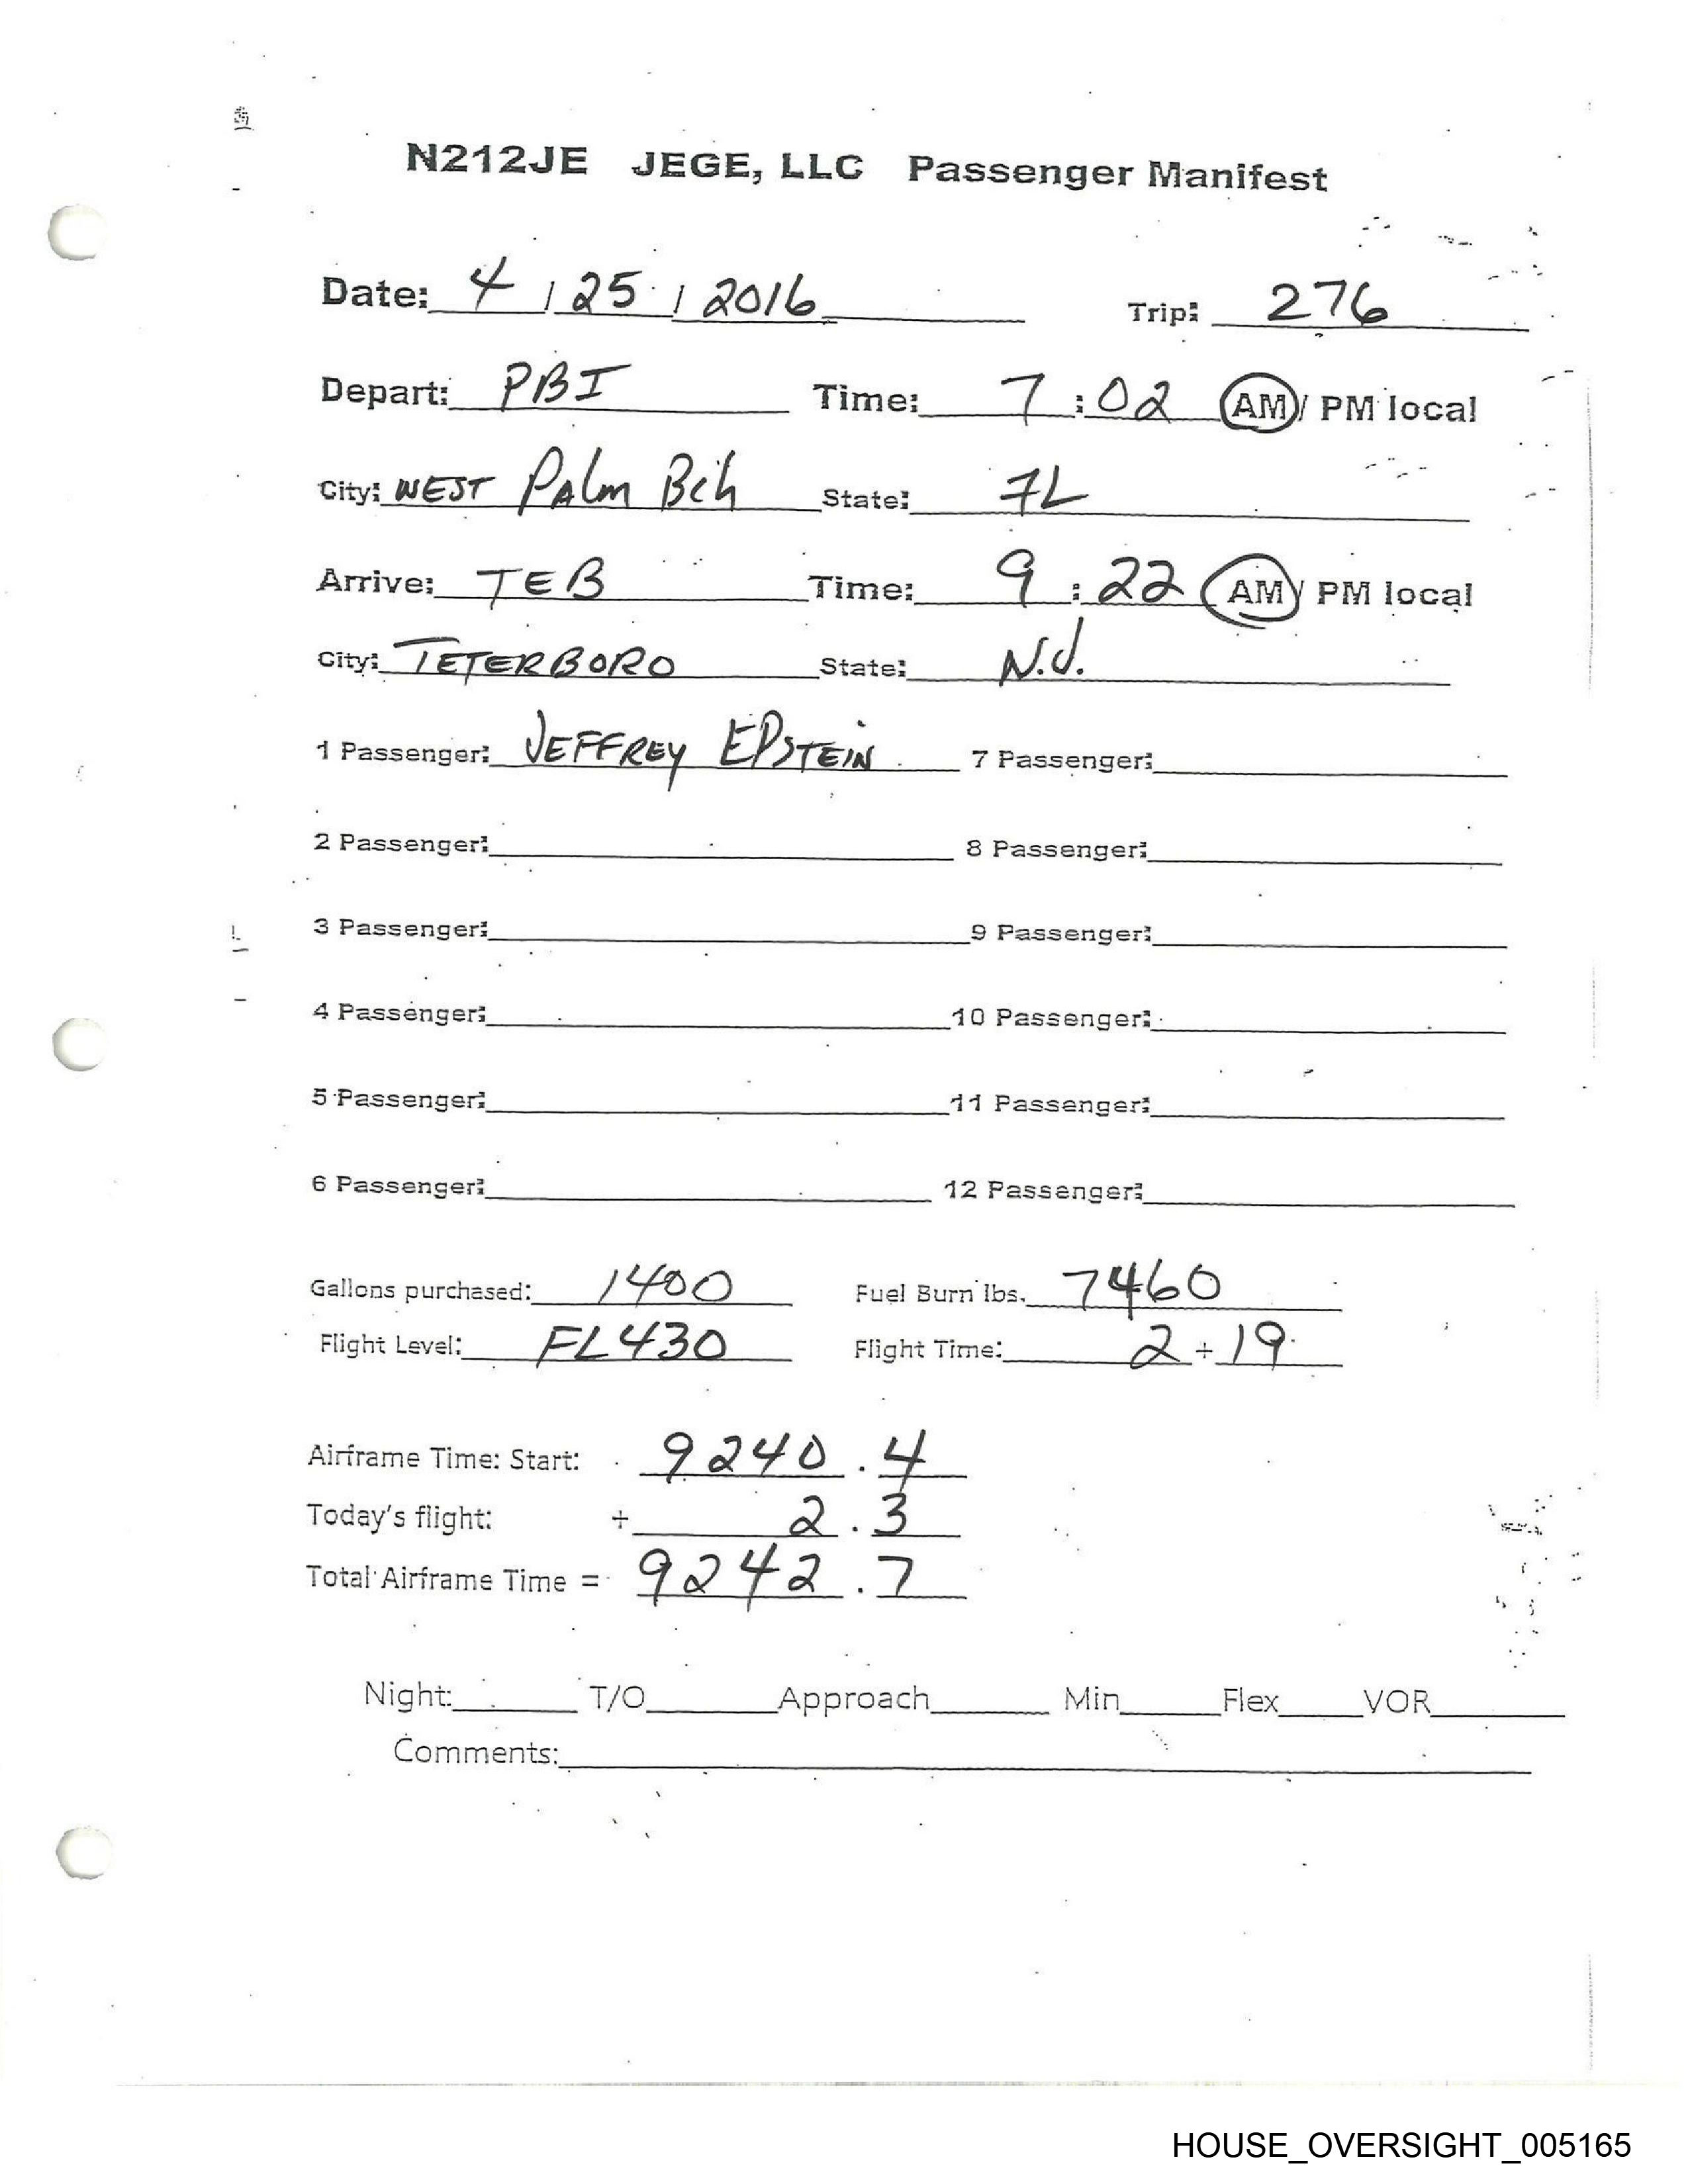 N212JE JEGE, LLC Passenger Manifest
Date: 4 / 25 / 2016 Trip: 276
Depart: PBI Time: 7 : 02 AM / PM local
City: WEST PALM BCH State: FL
Arrive: TEB Time: 9 : 22 AM / PM local
City: TETERBORO State: N.J.
1 Passenger: JEFFREY EPSTEIN 7 Passenger:
2 Passenger: 8 Passenger:
3 Passenger: 9 Passenger:
4 Passenger: 10 Passenger:
5 Passenger: 11 Passenger:
6 Passenger: 12 Passenger:
Gallons purchased: 1400 Fuel Burn lbs. 7460
Flight Level: FL430 Flight Time: 2 + 19
Airframe Time: Start: 9240 . 4
Today's flight: + 2 . 3
Total Airframe Time = 9242 . 7
Night: T/O Approach Min Flex VOR
Comments:
HOUSE_OVERSIGHT_005165